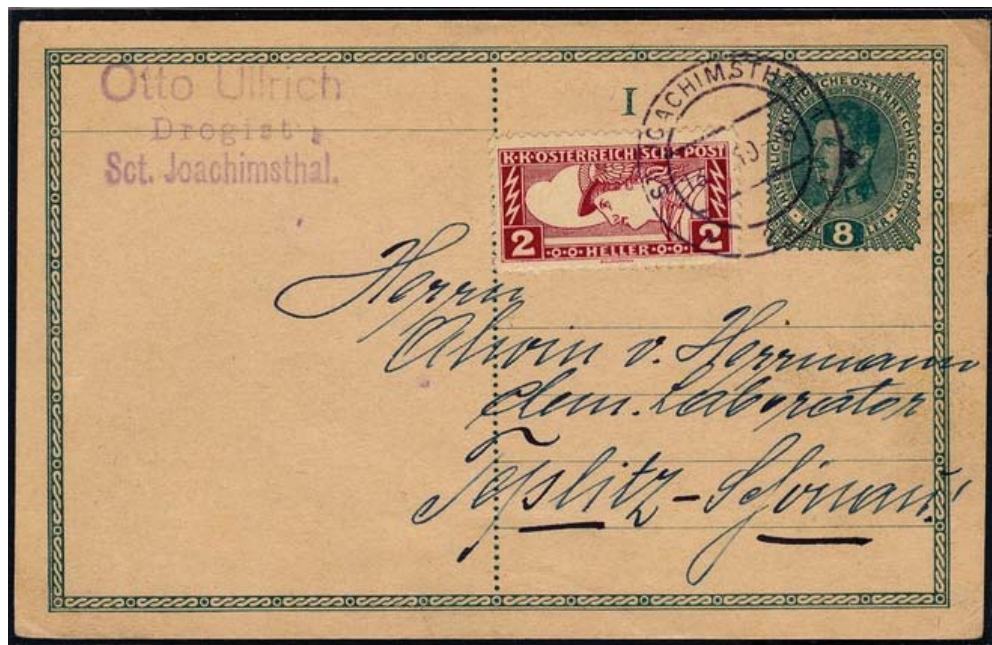 Otto Ullrich
Drogist
Sct. Joachimsthal.
I
K·K·OSTERREICHISCHE POST
2 HELLER 2
ST. JOACHIMSTHAL
KAISERLICHE KÖNIGLICHE ÖSTERREICHISCHE POST
8
Herrn
Alwin v. Herrmann
Chem. Laborator
Teplitz-Schönau!